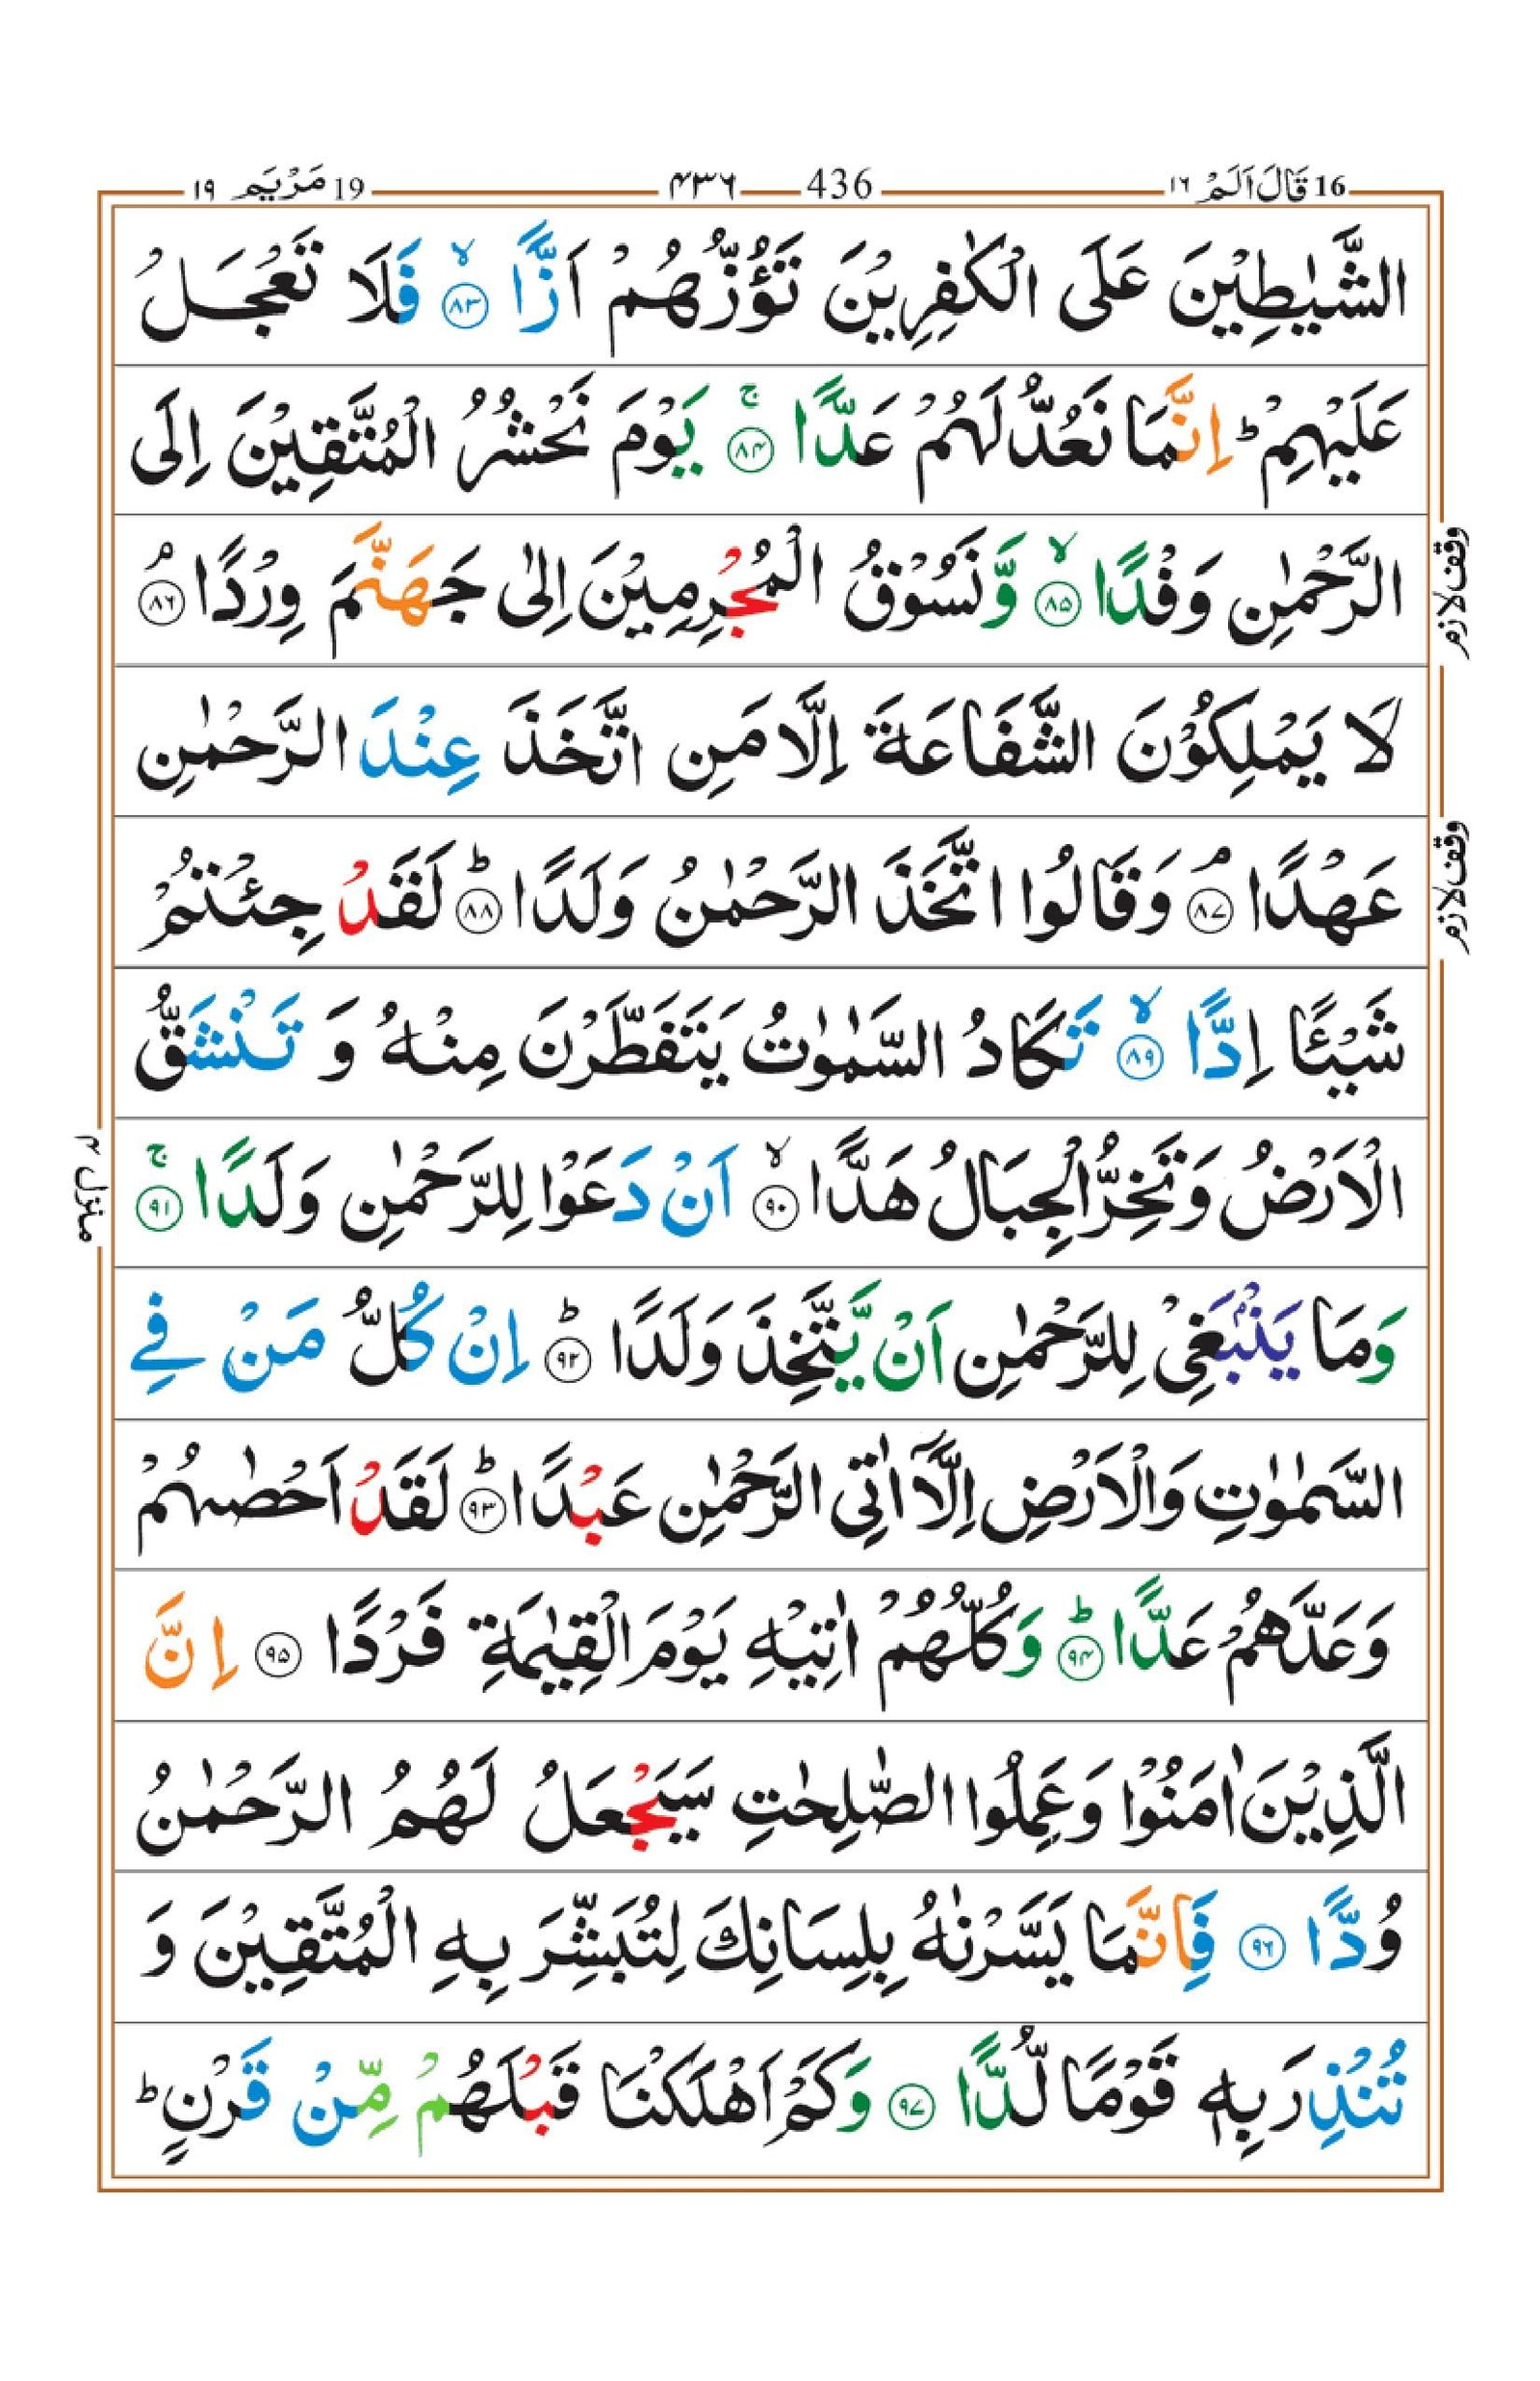 16 قَالَ اَلَمْ ١٦ 436 ۴۳۶ 19 مَرْيَم ١٩
الشَّيٰطِيْنَ عَلَى الْكٰفِرِيْنَ تَؤُزُّهُمْ اَزًّا ۙ﴿۸۳﴾ فَلَا تَعْجَلْ
عَلَيْهِمْ ؕ اِنَّمَا نَعُدُّ لَهُمْ عَدًّا ۚ﴿۸۴﴾ يَوْمَ نَحْشُرُ الْمُتَّقِيْنَ اِلَى
الرَّحْمٰنِ وَفْدًا ۙ﴿۸۵﴾ وَّنَسُوْقُ الْمُجْرِمِيْنَ اِلٰى جَهَنَّمَ وِرْدًا ۘ﴿۸۶﴾
وقف لازم
لَا يَمْلِكُوْنَ الشَّفَاعَةَ اِلَّا مَنِ اتَّخَذَ عِنْدَ الرَّحْمٰنِ
عَهْدًا ۘ﴿۸۷﴾ وَقَالُوا اتَّخَذَ الرَّحْمٰنُ وَلَدًا ؕ﴿۸۸﴾ لَقَدْ جِئْتُمْ
وقف لازم
شَيْـًٔا اِدًّا ۙ﴿۸۹﴾ تَكَادُ السَّمٰوٰتُ يَتَفَطَّرْنَ مِنْهُ وَ تَنْشَقُّ
الْاَرْضُ وَتَخِرُّ الْجِبَالُ هَدًّا ۙ﴿۹۰﴾ اَنْ دَعَوْا لِلرَّحْمٰنِ وَلَدًا ۚ﴿۹۱﴾
منزل ۴
وَمَا يَنْۢبَغِيْ لِلرَّحْمٰنِ اَنْ يَّتَّخِذَ وَلَدًا ؕ﴿۹۲﴾ اِنْ كُلُّ مَنْ فِي
السَّمٰوٰتِ وَالْاَرْضِ اِلَّاۤ اٰتِي الرَّحْمٰنِ عَبْدًا ؕ﴿۹۳﴾ لَقَدْ اَحْصٰىهُمْ
وَعَدَّهُمْ عَدًّا ؕ﴿۹۴﴾ وَكُلُّهُمْ اٰتِيْهِ يَوْمَ الْقِيٰمَةِ فَرْدًا ﴿۹۵﴾ اِنَّ
الَّذِيْنَ اٰمَنُوْا وَعَمِلُوا الصّٰلِحٰتِ سَيَجْعَلُ لَهُمُ الرَّحْمٰنُ
وُدًّا ﴿۹۶﴾ فَاِنَّمَا يَسَّرْنٰهُ بِلِسَانِكَ لِتُبَشِّرَ بِهِ الْمُتَّقِيْنَ وَ
تُنْذِرَ بِهٖ قَوْمًا لُّدًّا ﴿۹۷﴾ وَكَمْ اَهْلَكْنَا قَبْلَهُمْ مِّنْ قَرْنٍ ؕ